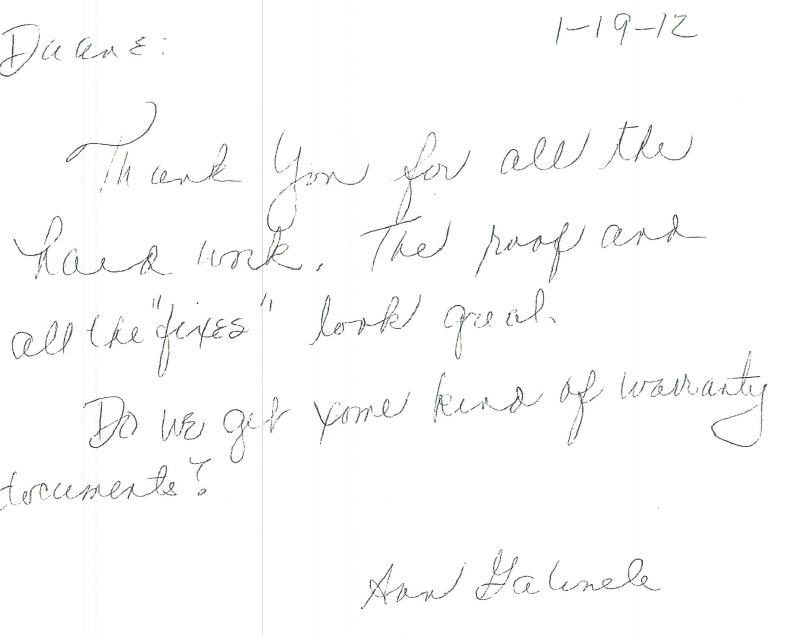 Duane:
1-19-12
Thank You for all the
hard work. The roof and
all the "fixes" look great.
Do we get some kind of warranty
documents?
Ann